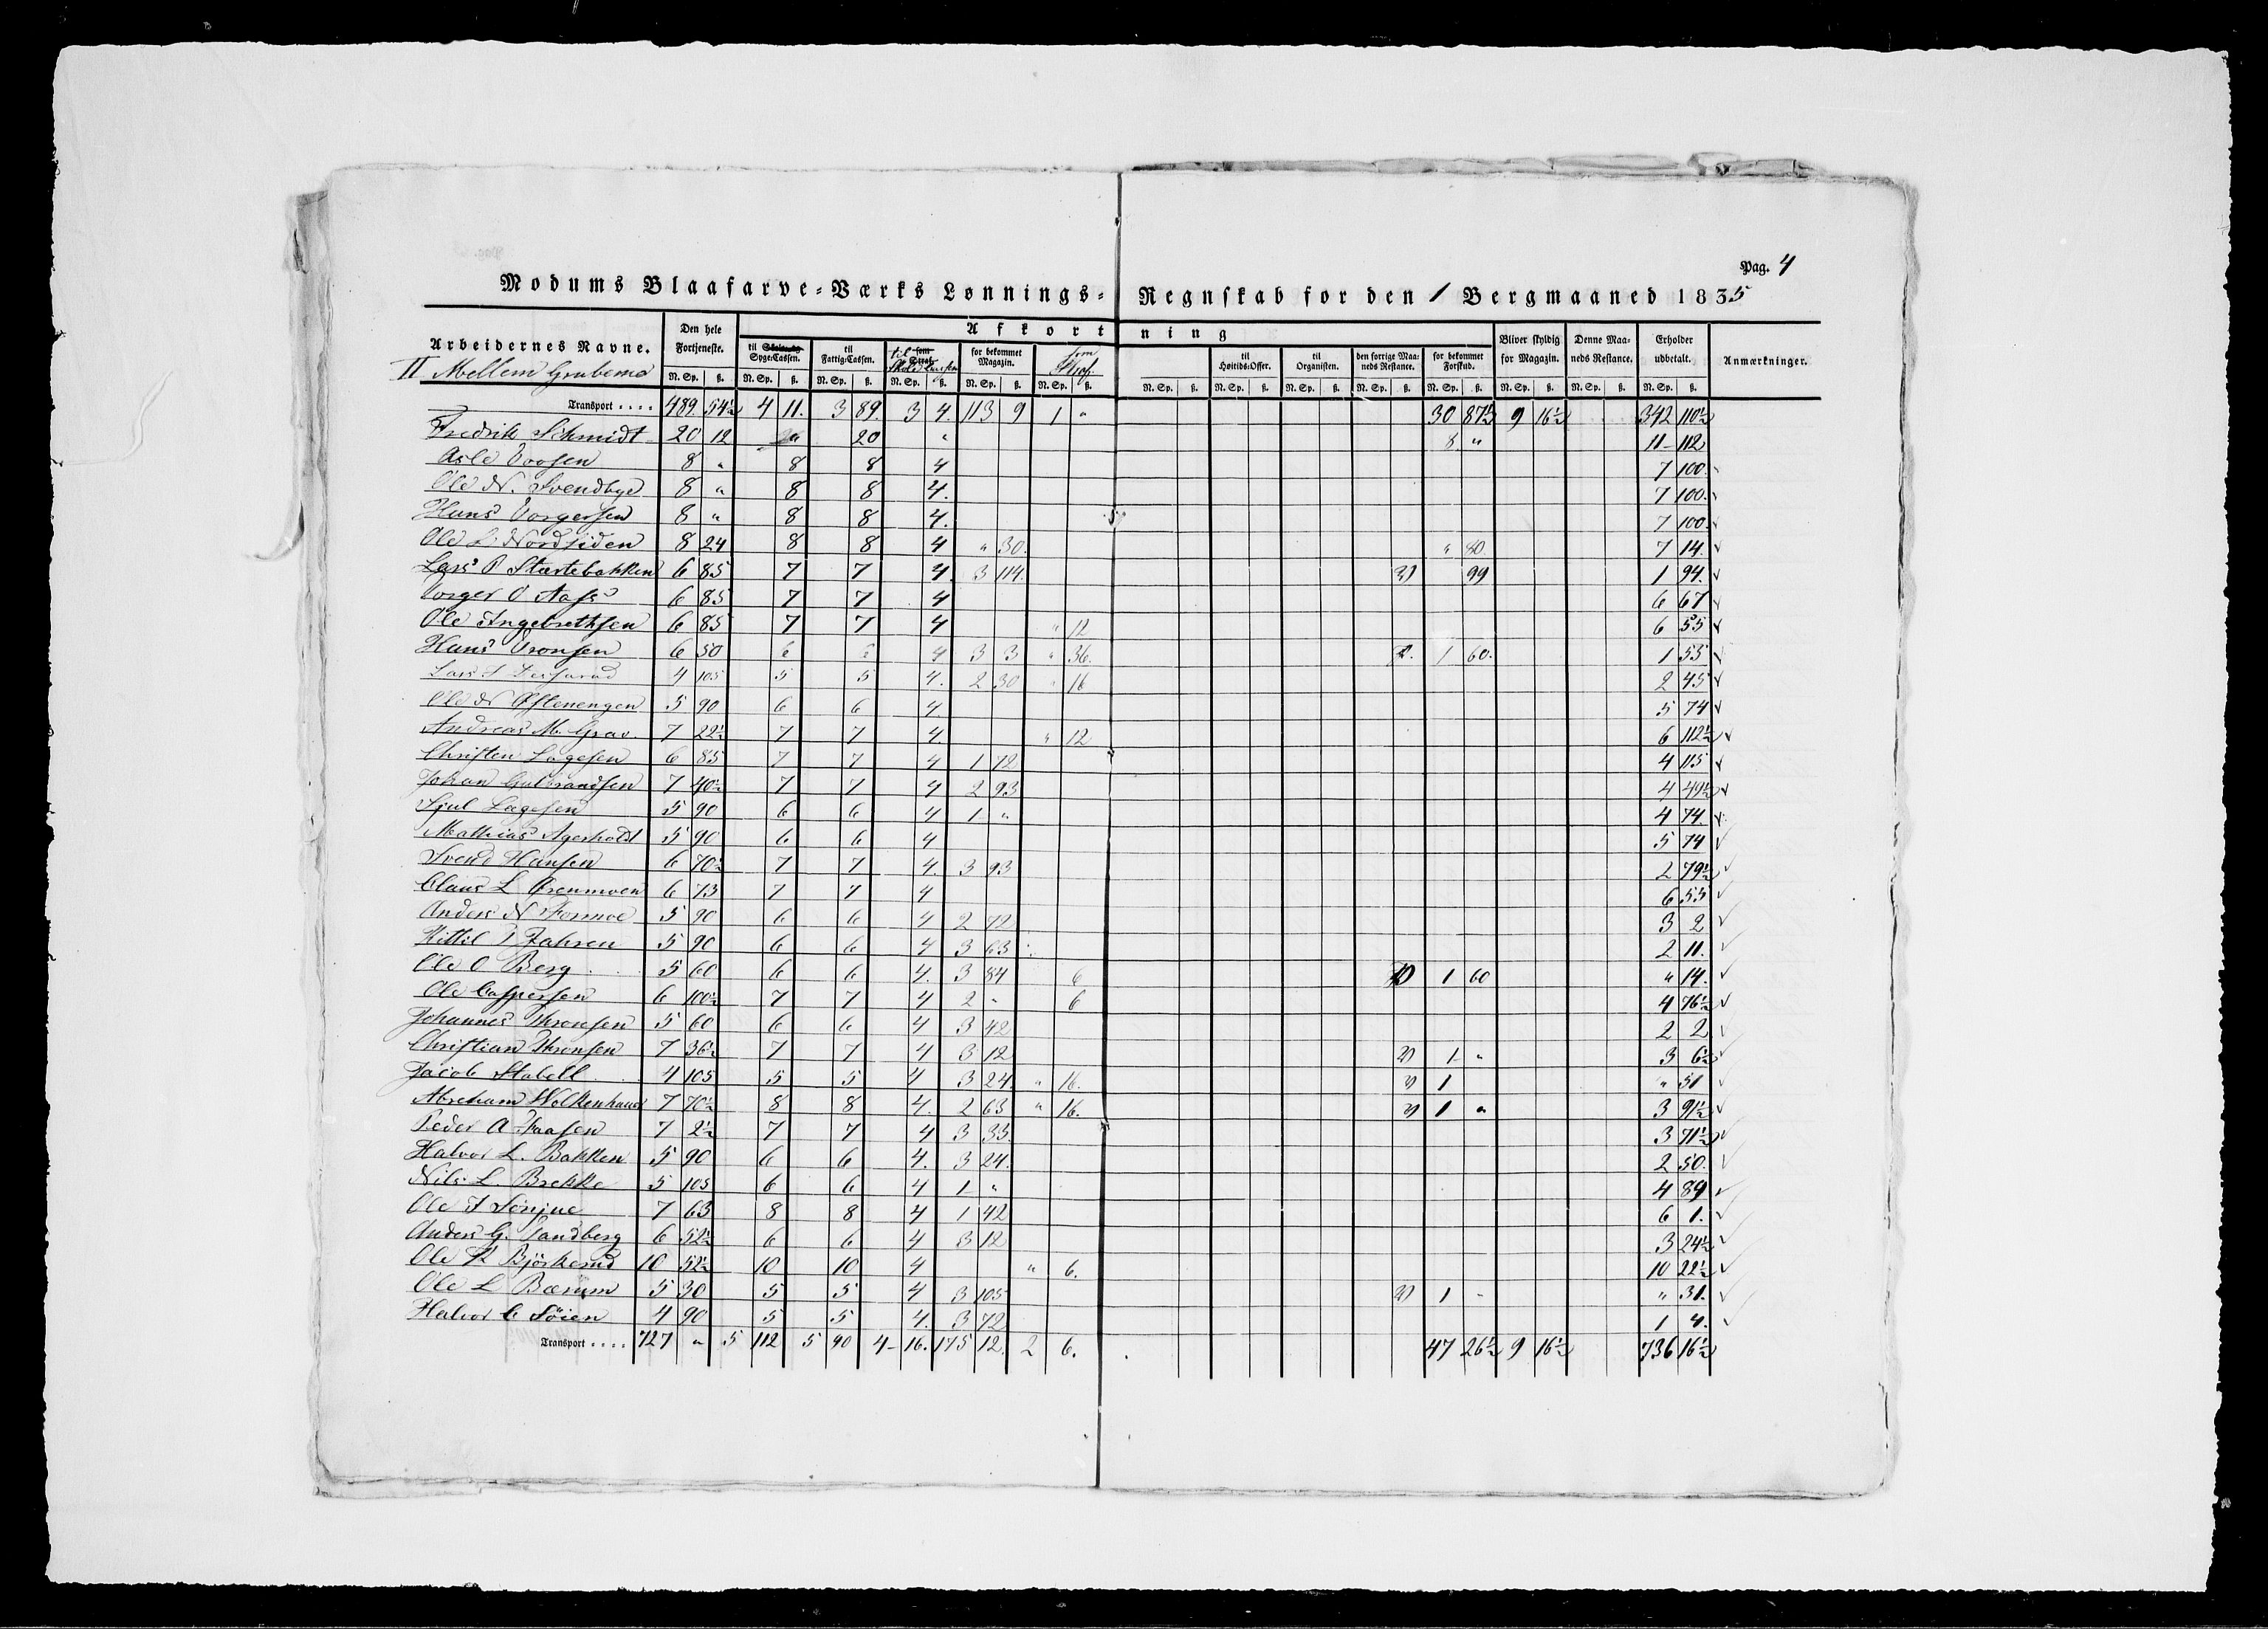 Pag. 4
Modums Blaafarve-Værks Lønnings- Regnskab for den 1 Bergmaaned 1835
Afkortning
Arbeidernes Navne. Den hele Fortjeneste. til Skole og Syge-Cassen. til Fattig-Cassen. til som Straf. Skole Cassen for bekommet Magazin. som Straf. til Høitids-Offer. til Organisten. den forrige Maaneds Restance. for bekommet Forskud. Bliver skyldig for Magazin. Denne Maaneds Restance. Erholder udbetalt. Anmærkninger.
II Mellem Gruberne
N. Sp. ß. N. Sp. ß. N. Sp. ß. N. Sp. ß. N. Sp. ß. N. Sp. ß. N. Sp. ß. N. Sp. ß. N. Sp. ß. N. Sp. ß. N. Sp. ß. N. Sp. ß. N. Sp. ß. N. Sp. ß.
Transport .... 489 54½ 4 11. 3 89. 3 4. 113 9 1 " 30 87½ 9 16½ 342 110½
Fredrik Schmidt 20 12 20 " 8 " 11 - 112
Asle 8 " 8 8 4 7 100.
Ole N. Svendbye 8 " 8 8 4. 7 100.
Hans Torgersen 8 " 8 8 4. 7 100.
Ole L Nordsiden 8 24 8 8 4 " 30. " 80. 7 14.
Lars P Stærtebakken 6 85 7 7 4. 3 114. 99 1 94.
Torger O Aass 6 85 7 7 4 6 67
Ole Ingebrethsen 6 85 7 7 4 " 12 6 55
Hans Tronsen 6 50 6 6 4 3 3 " 36. 1 60. 1 55
Lars 4 105 5 5 4. 2 30 " 16 2 45
Ole N Østenengen 5 90 6 6 4 5 74
Andreas M. Grav. 7 22½ 7 7 4. " 12 6 112½
Christen Lagesen 6 85 7 7 4 1 72 4 115
Johan Gulbrandsen 7 40½ 7 7 4 2 93 4 49½
Sjul Lagesen 5 90 6 6 4 1 " 4 74.
Mathias Agerholdt 5 90 6 6 4 5 74
Svend Hansen 6 70½ 7 7 4. 3 93 2 79½
Claus L Ørenmoen 6 73 7 7 4 6 55
Anders N Formoe 5 90 6 6 4 2 72 3 2
Kittil T Fahren 5 90 6 6 4 3 63 2 11.
Ole O Berg 5 60 6 6 4. 3 84 6 1 60 " 14.
Ole Caspersen 6 100½ 7 7 4 2 " 6 4 76½
Johannes Thronsen 5 60 6 6 4 3 42 2 2
Christian Thronsen 7 36½ 7 7 4 3 12 1 " 3 6½
Jacob Stabell 4 105 5 5 4 3 24. " 16. 1 " 51
Abraham Wolkenhauer 7 70½ 8 8 4. 2 63 " 16. 1 " 3 91½
Peder A 7 2½ 7 7 4 3 33. 3 71½
Halvor L. Bakken 5 90 6 6 4. 3 24. 2 50.
Nils L. Brekke 5 105 6 6 4 1 " 4 89
Ole 7 63 8 8 4 1 42 6 1.
Anders G. Sandberg 6 52½ 6 6 4 3 12 3 24½
Ole K Björkerud 10 52½ 10 10 4 " 6. 10 22½
Ole L Bærum 5 30 5 5 4 3 105 1 - " 31.
Halvor C Söien 4 90 5 5 4. 3 72 1 4.
Transport .... 727 " 5 112 5 90 4 - 16. 175 12. 2 6. 47 26½ 9 16½ 736 16½